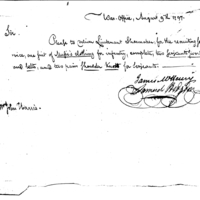 War-Office, August 5th 1797.
Sir
Please to deliver Lieutenant Shoemaker, for the recruiting ser
vice, one suit of Serjts clothing for infantry, complete, two Serjeants swords
and belts, and two pair Shoulder knots for Serjeants.
James McHenry
Samuel Hodgdon
Mr John Harris